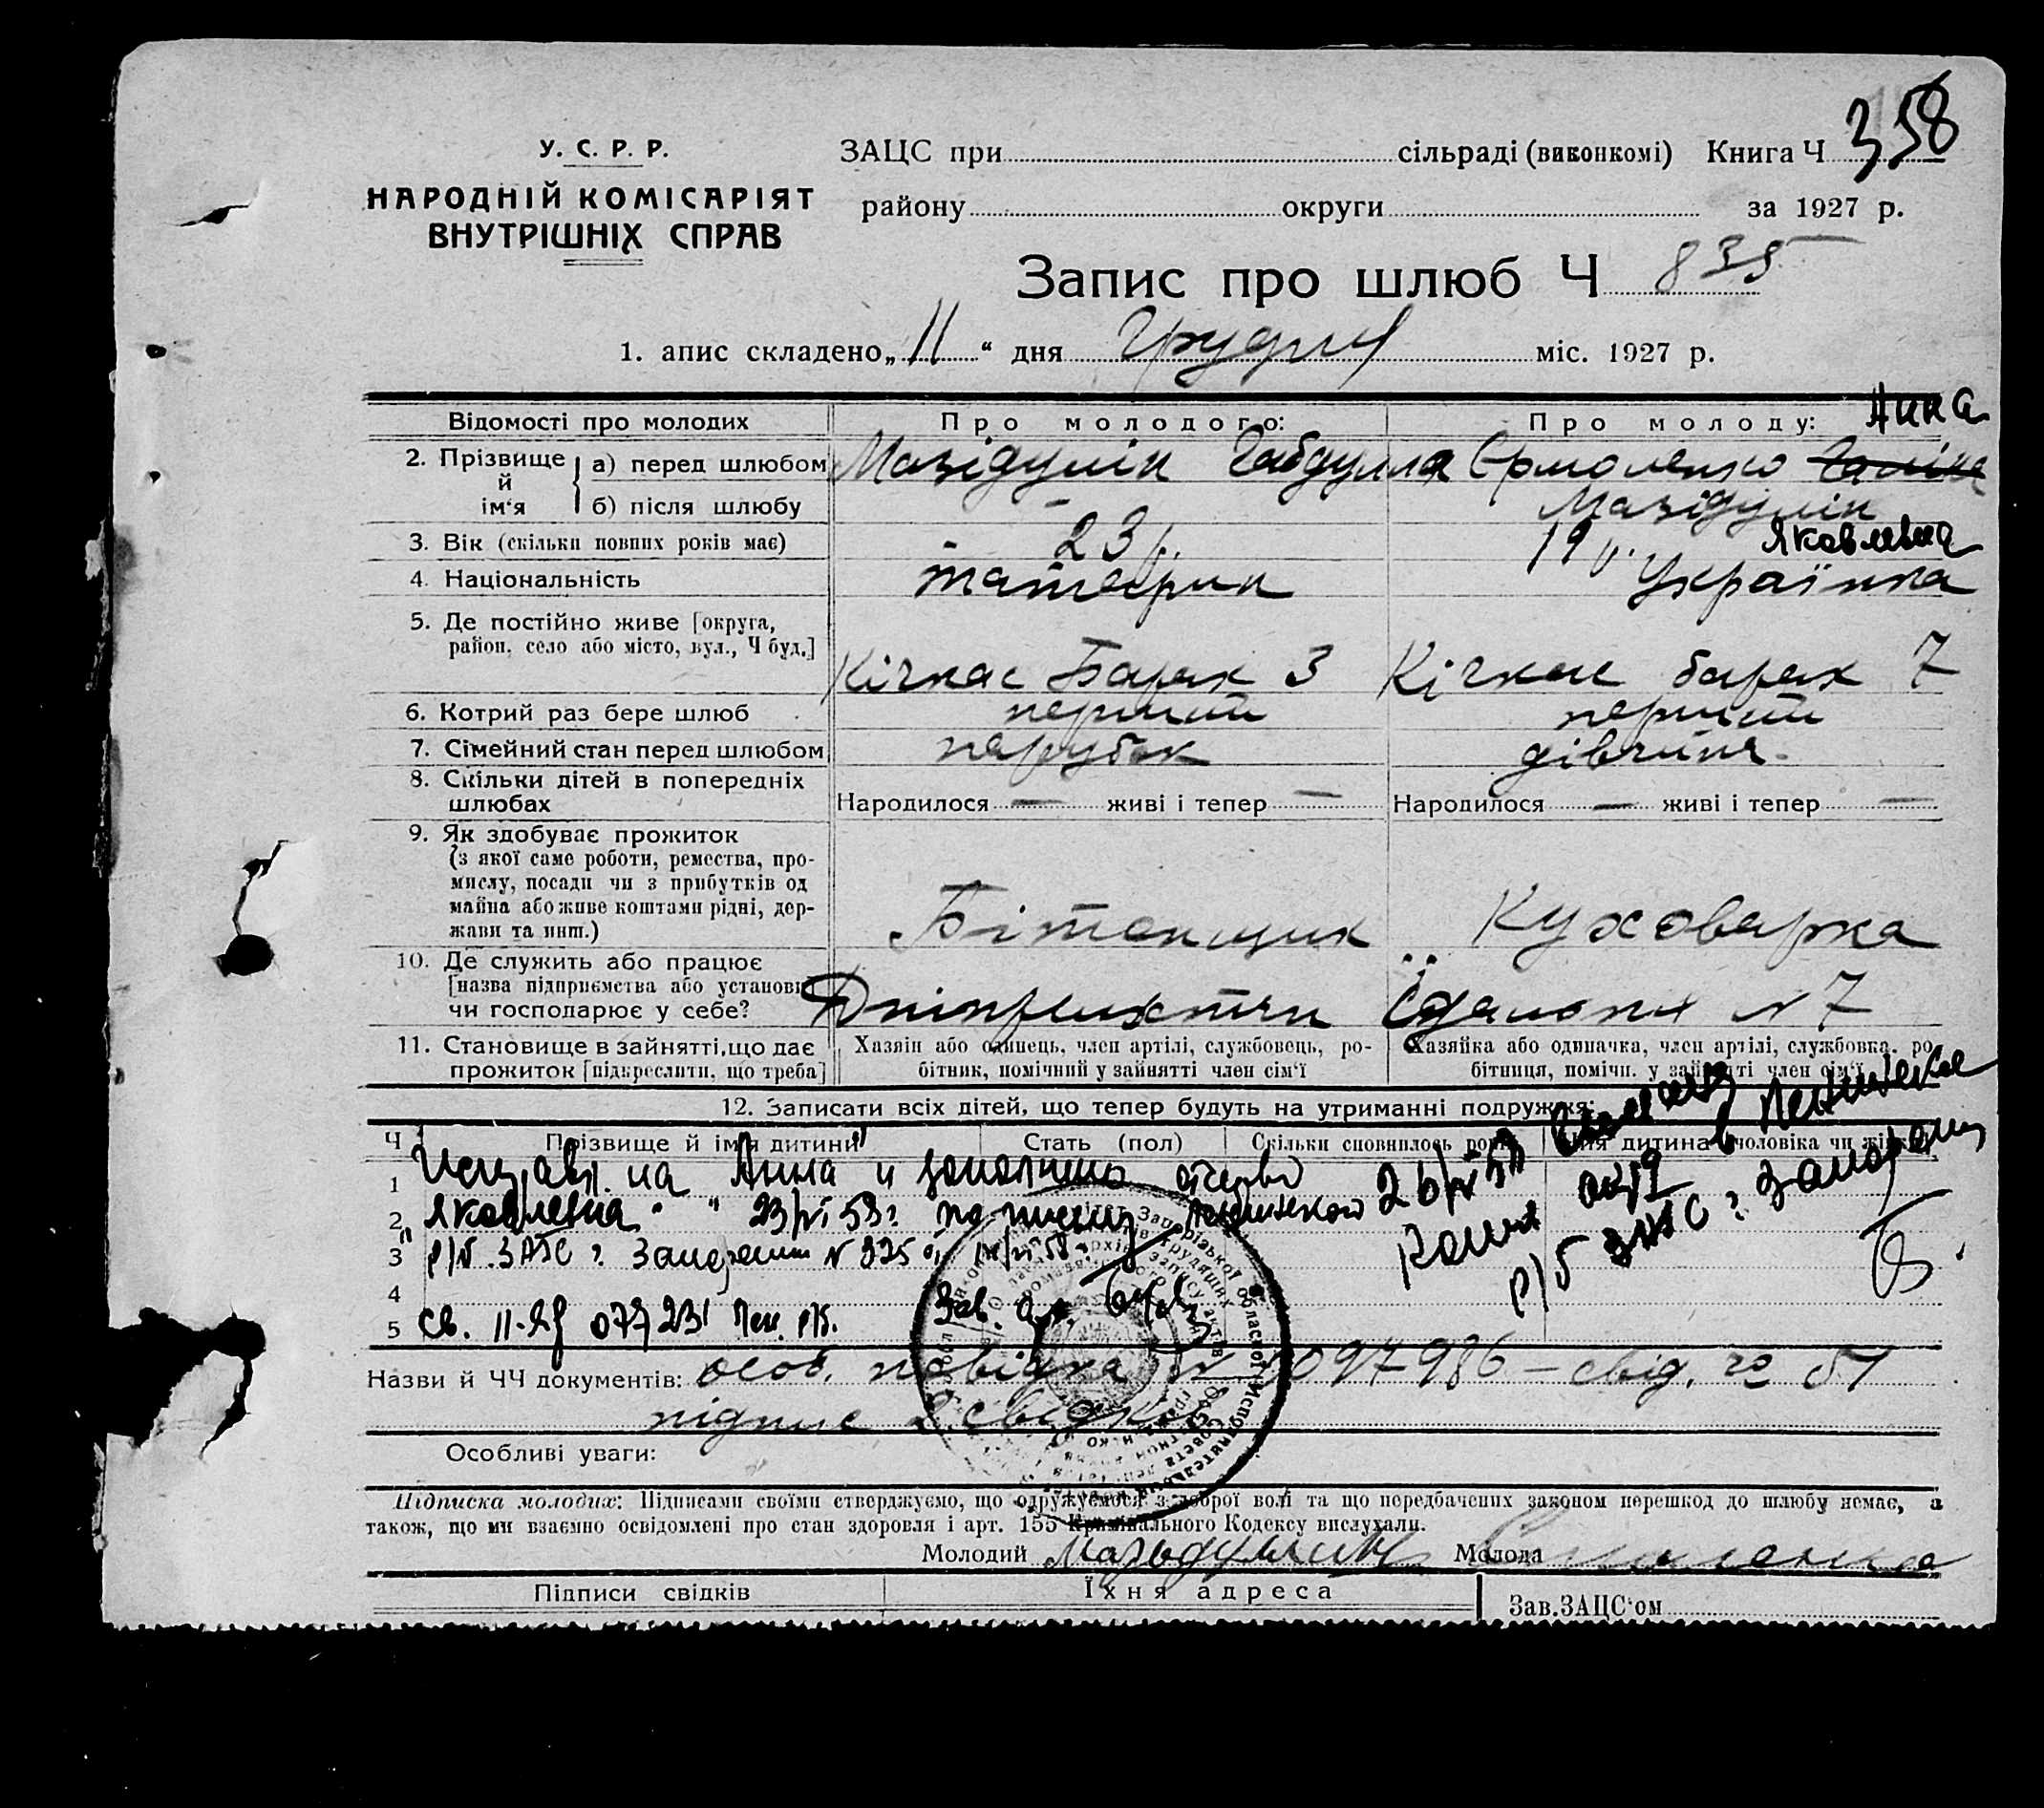 358
У. С. Р. Р.
НАРОДНІЙ КОМІСАРІЯТ
ВНУТРІШНІХ СПРАВ
ЗАЦС при сільраді (виконкомі) Книга Ч
району округи за 1927 р.
Запис про шлюб Ч 835
1. апис складено „11“ дня Грудня міс. 1927 р.
Відомості про молодих Про молодого: Про молоду: Анна
2. Прізвище й ім‘я а) перед шлюбом Мазідулін Габдулла Єрмоленко Галина
б) після шлюбу – Мазідулін
Яковлевна
3. Вік (скільки повних років має) 23 р. 19 р.
4. Національність татарин Українка
5. Де постійно живе [округа,
район, село або місто, вул., Ч буд.] Кічкас Барак 3 Кічкас барак 7
6. Котрий раз бере шлюб перший перший
7. Сімейний стан перед шлюбом парубок дівчина
8. Скільки дітей в попередніх
шлюбах Народилося — живі і тепер — Народилося — живі і тепер —
9. Як здобуває прожиток
(з якої саме роботи, ремества, про-
мислу, посади чи з прибутків од
майна або живе коштами рідні, дер-
жави та инш.) Бітонщик Куховарка
10. Де служить або працює
[назва підприємства або установи
чи господарює у себе? Їдальня N 7
11. Становище в зайнятті, що дає Хазяін або одинець, член артілі, службовець, ро- Хазяйка або одиначка, член артілі, службовка, ро
прожиток [підкреслити, що треба] бітник, помічний у зайнятті член сім‘ї бітниця, помічн. у зайнятті член сім‘ї
12. Записати всіх дітей, що тепер будуть на утриманні подружжя:
Ч Прізвище й ім‘я дитини Стать (пол) Скільки сповнилось років Чия дитина чоловіка чи жінки
1 на „Анна и отчество
2 Яковлевна“ 23/VI 58 г.
3 р/б. ЗАГС г. N 325
4
5 св. II-ЯЯ 077231
р/б ЗАГС г.
Назви й ЧЧ документів: особ. посвідка N 097986 – свід. 51
підпис 2 свідки
Особливі уваги:
Підписка молодих: Підписами своїми стверджуємо, що одружуємося з доброї волі та що передбачених законом перешкод до шлюбу немає, а
також, що ми взаємно освідомлені про стан здоровля і арт. 155 Кримінального Кодексу вислухали.
Молодий Молода
Підписи свідків Їхня адреса Зав.ЗАЦС‘ом